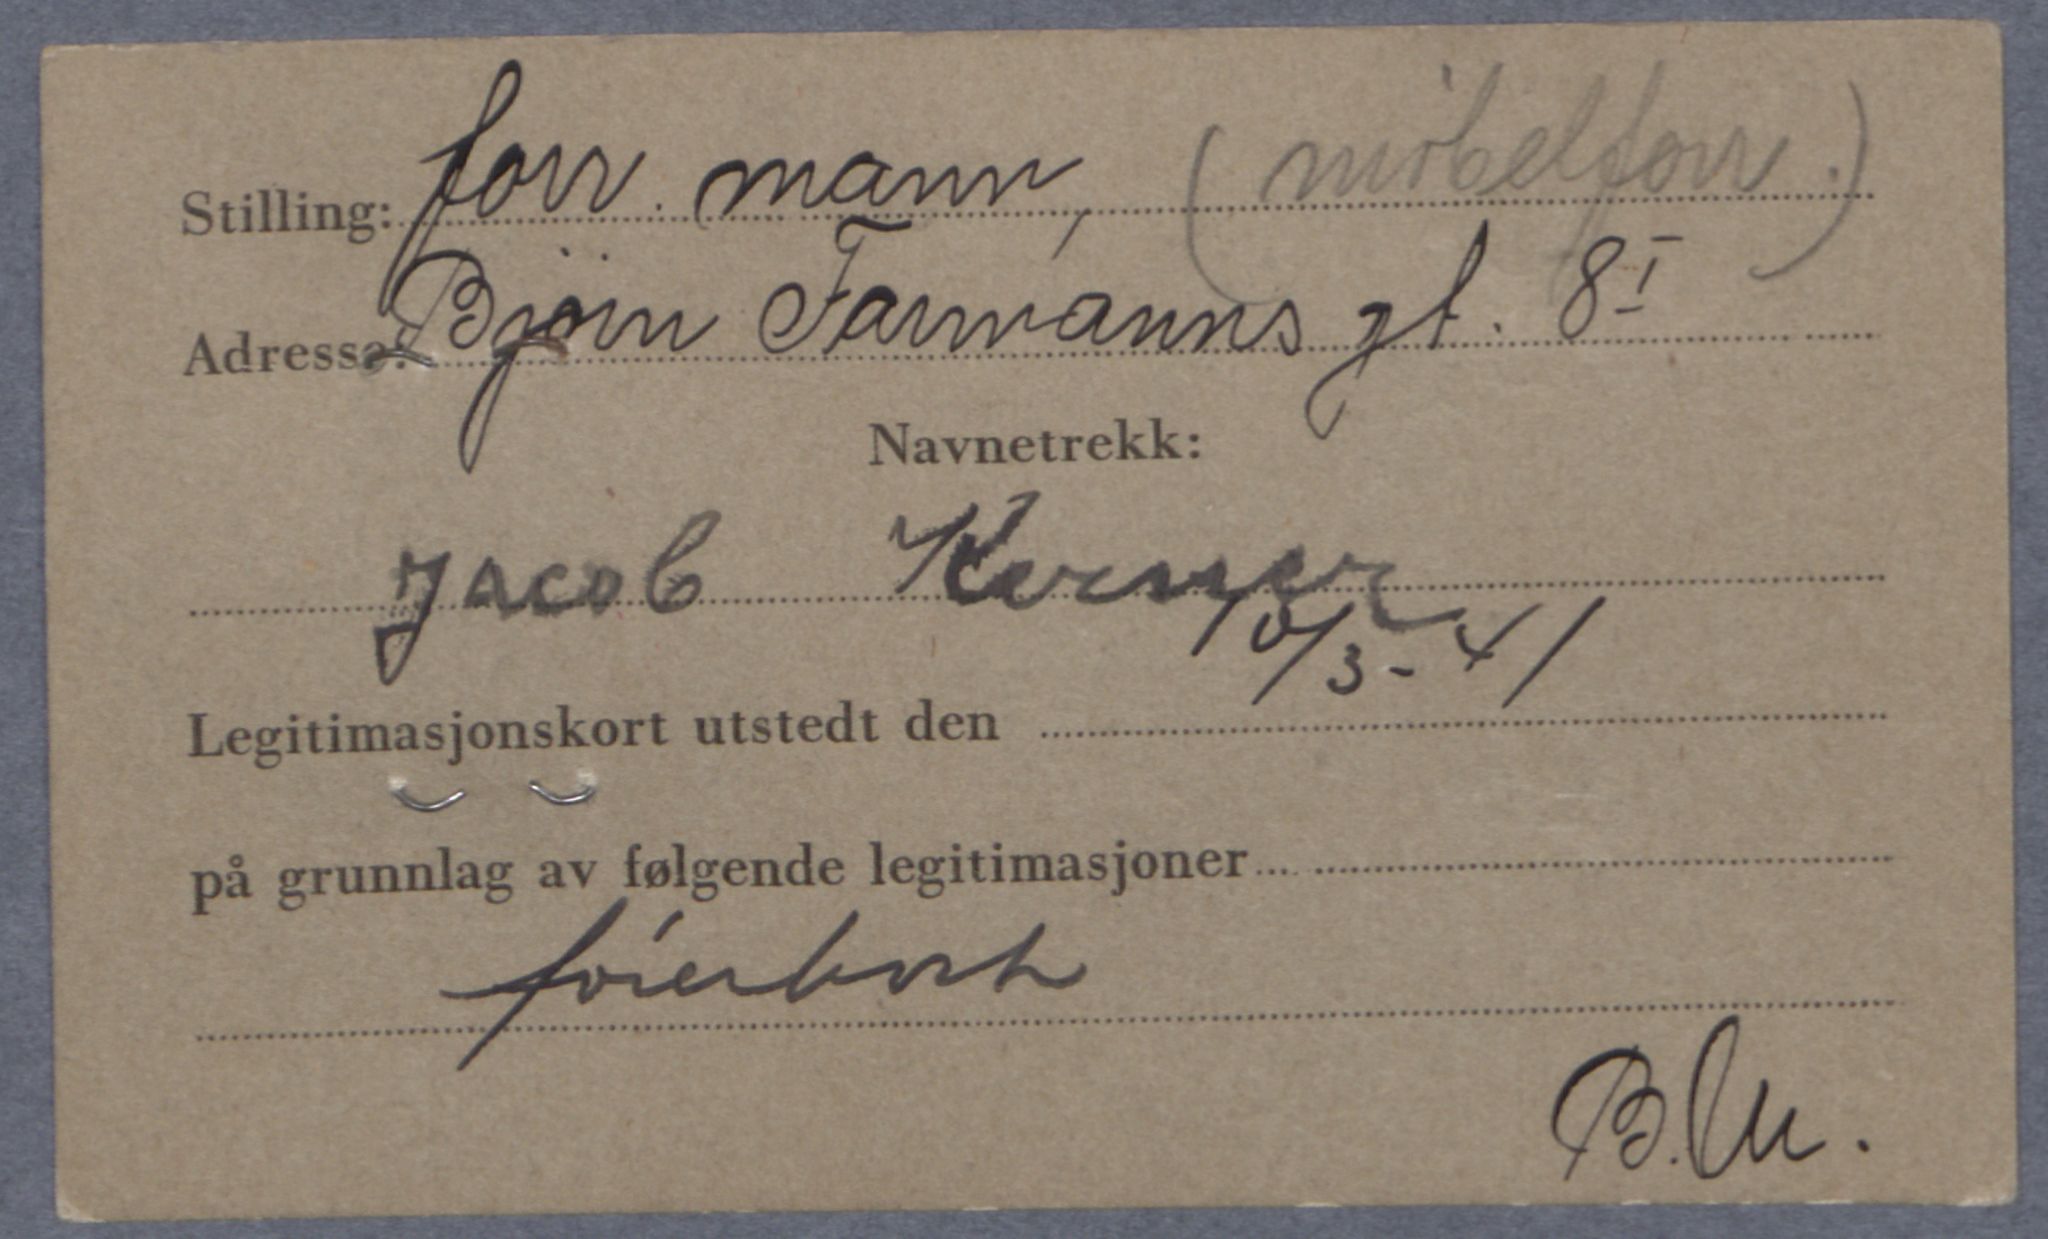 Stilling: forr. mann, (möbelforr.)
Adresse: Björn Farmanns gt. 8 I
Navnetrekk:
Jacob Kerner
10/3-41
Legitimasjonskort utstedt den
på grunnlag av følgende legitimasjoner
B.M.